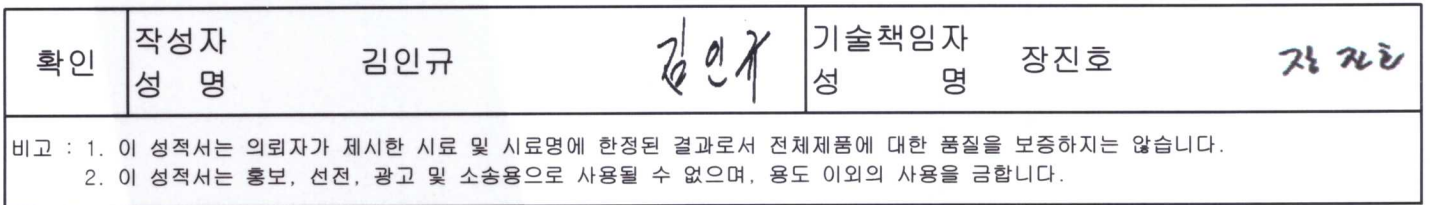 확인
작성자 김인규 김인규 기술책임자 장진호 장진호
성 명 성 명
비고 : 1. 이 성적서는 의뢰자가 제시한 시료 및 시료명에 한정된 결과로서 전체제품에 대한 품질을 보증하지는 않습니다.
2. 이 성적서는 홍보, 선전, 광고 및 소송용으로 사용될 수 없으며, 용도 이외의 사용을 금합니다.